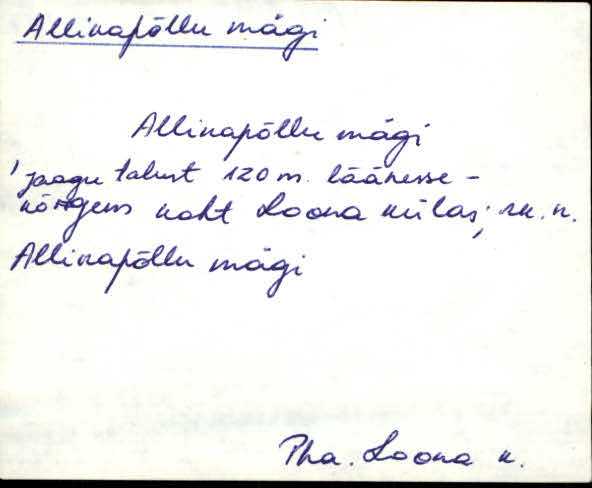 Allikapõllu mägi
Allikapõllu mägi
'Jaagu talust 120 m. läänesse -
kõrgem koht Loona külas; rk. n.
Allikapõllu mägi
Pha. Loona k.